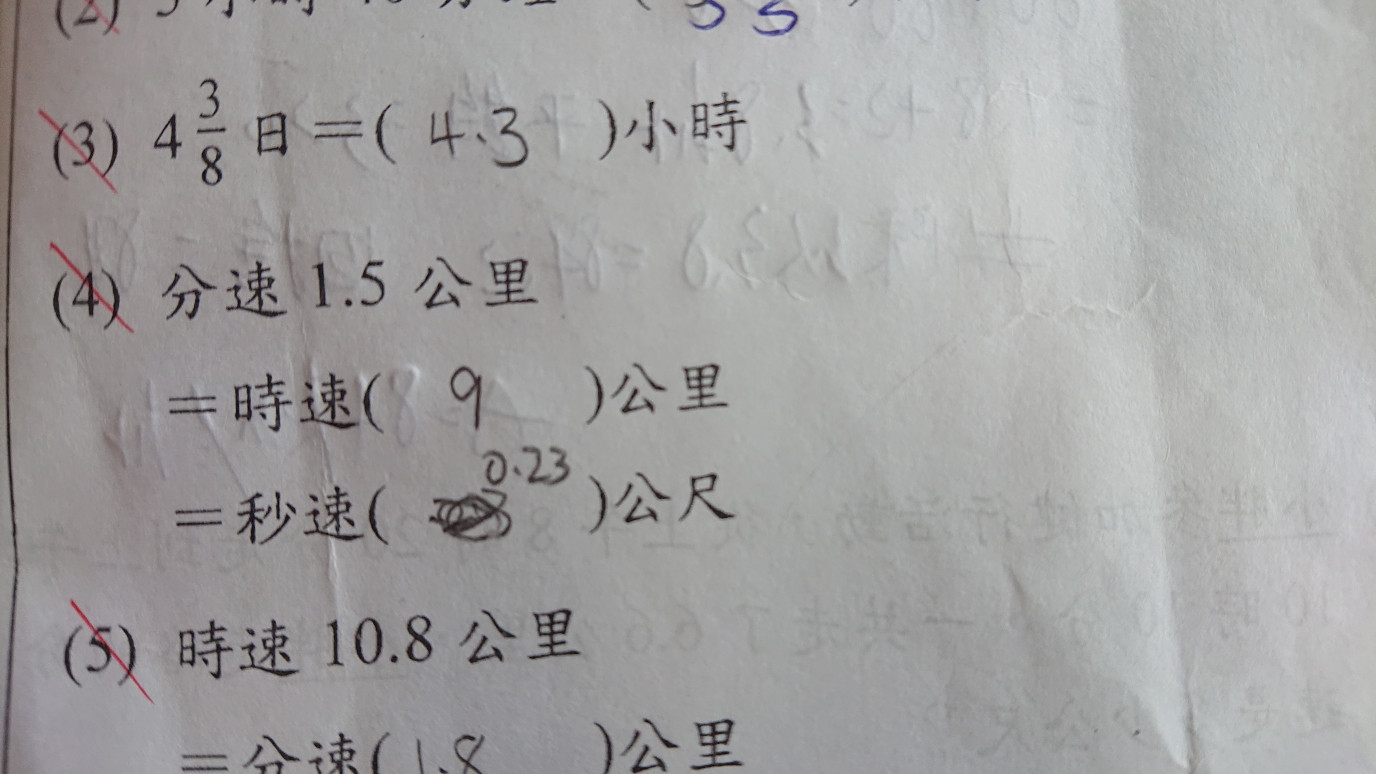 (2)
(3) 4 3/8 日=( 4.3 )小時
(4) 分速 1.5 公里
=時速( 9 )公里
=秒速( 0.23 )公尺
(5) 時速 10.8 公里
=分速( 1.8 )公里